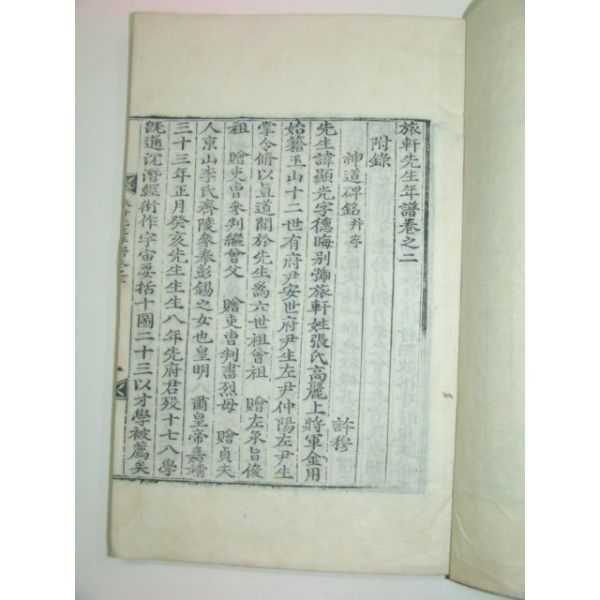 旅軒先生年譜卷之二
附錄
神道碑銘 幷序
許穆
先生諱顯光字德晦別號旅軒姓張氏高麗上將軍金用
始籍玉山十二世有府尹安世府尹生左尹仲陽左尹生
掌令脩以直道聞於先生爲六世祖曾祖 贈左承旨俊
祖 贈吏曹參判繼曾父 贈吏曹判書烈母 贈貞夫
人京山李氏齊陵參奉彭錫之女也皇明 肅皇帝嘉靖
三十三年正月癸亥先生生生八年先府君歿十七八學
旣通沉潛經術作宇宙要括十圖二十三以才學被薦矣